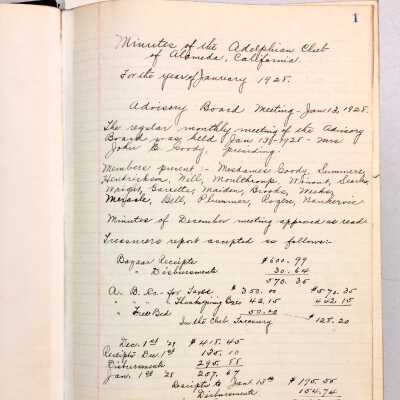 1
Minutes of the Adelphian Club
of Alameda, California.
For the year of January 1928.
Advisory Board Meeting - Jan 13, 1928.
The regular monthly meeting of the Advisory
Board was held Jan 13 - 1928 - Mrs
John G. Goody, Presiding.
Members present :- Mesdames Goody, Summers,
Hendrickson, Nelle, Moulthrop, Searles,
Wright, Garretta, Maiden, Brooks, Weeks,
Bell, Plummer, Rogers, Nankervis
Minutes of December meeting approved as read.
Treasurers report accepted as follows:-
Bazaar Receipts $600.99
" Disbursments 30.64
570.35
A. B. Co - for Taxes $350.00 $570.35
" " " " Thanksgiving 42.15 442.15
" Free Bed 50.00
In the Club Treasury $128.20
Dec. 1st $418.45
Receipts Dec. 1st 135.10
Disbursments 295.88
Jan. 1st 28 257.67
Receipts to Jan. 15th $195.55
Disbursments 154.74